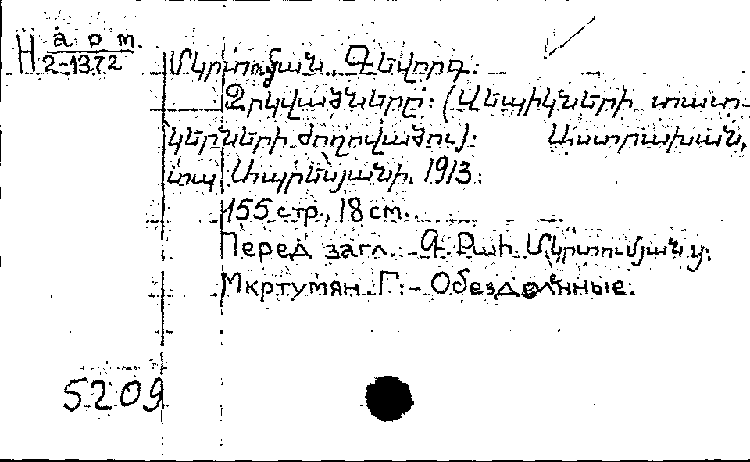 H а о т.
2-1372
Մկրտումյան Գևորգ.
Զրկվածները. (Վեպիկների պատ-
կերների ժողովածու). Աստրախան,
տպ. Ապրեսյանի, 1913.
155 стр., 18 см.
Перед загл. Գ. Քահ. Մկրտումյանց.
Мкртумян Г. - Обездоленные.
5209